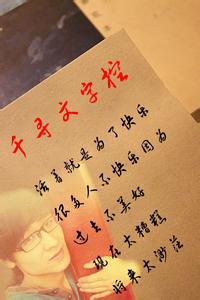 千寻文字控
活着就是为了快乐
很多人不快乐因为
过去不美好
现在太糟糕
将来太渺茫